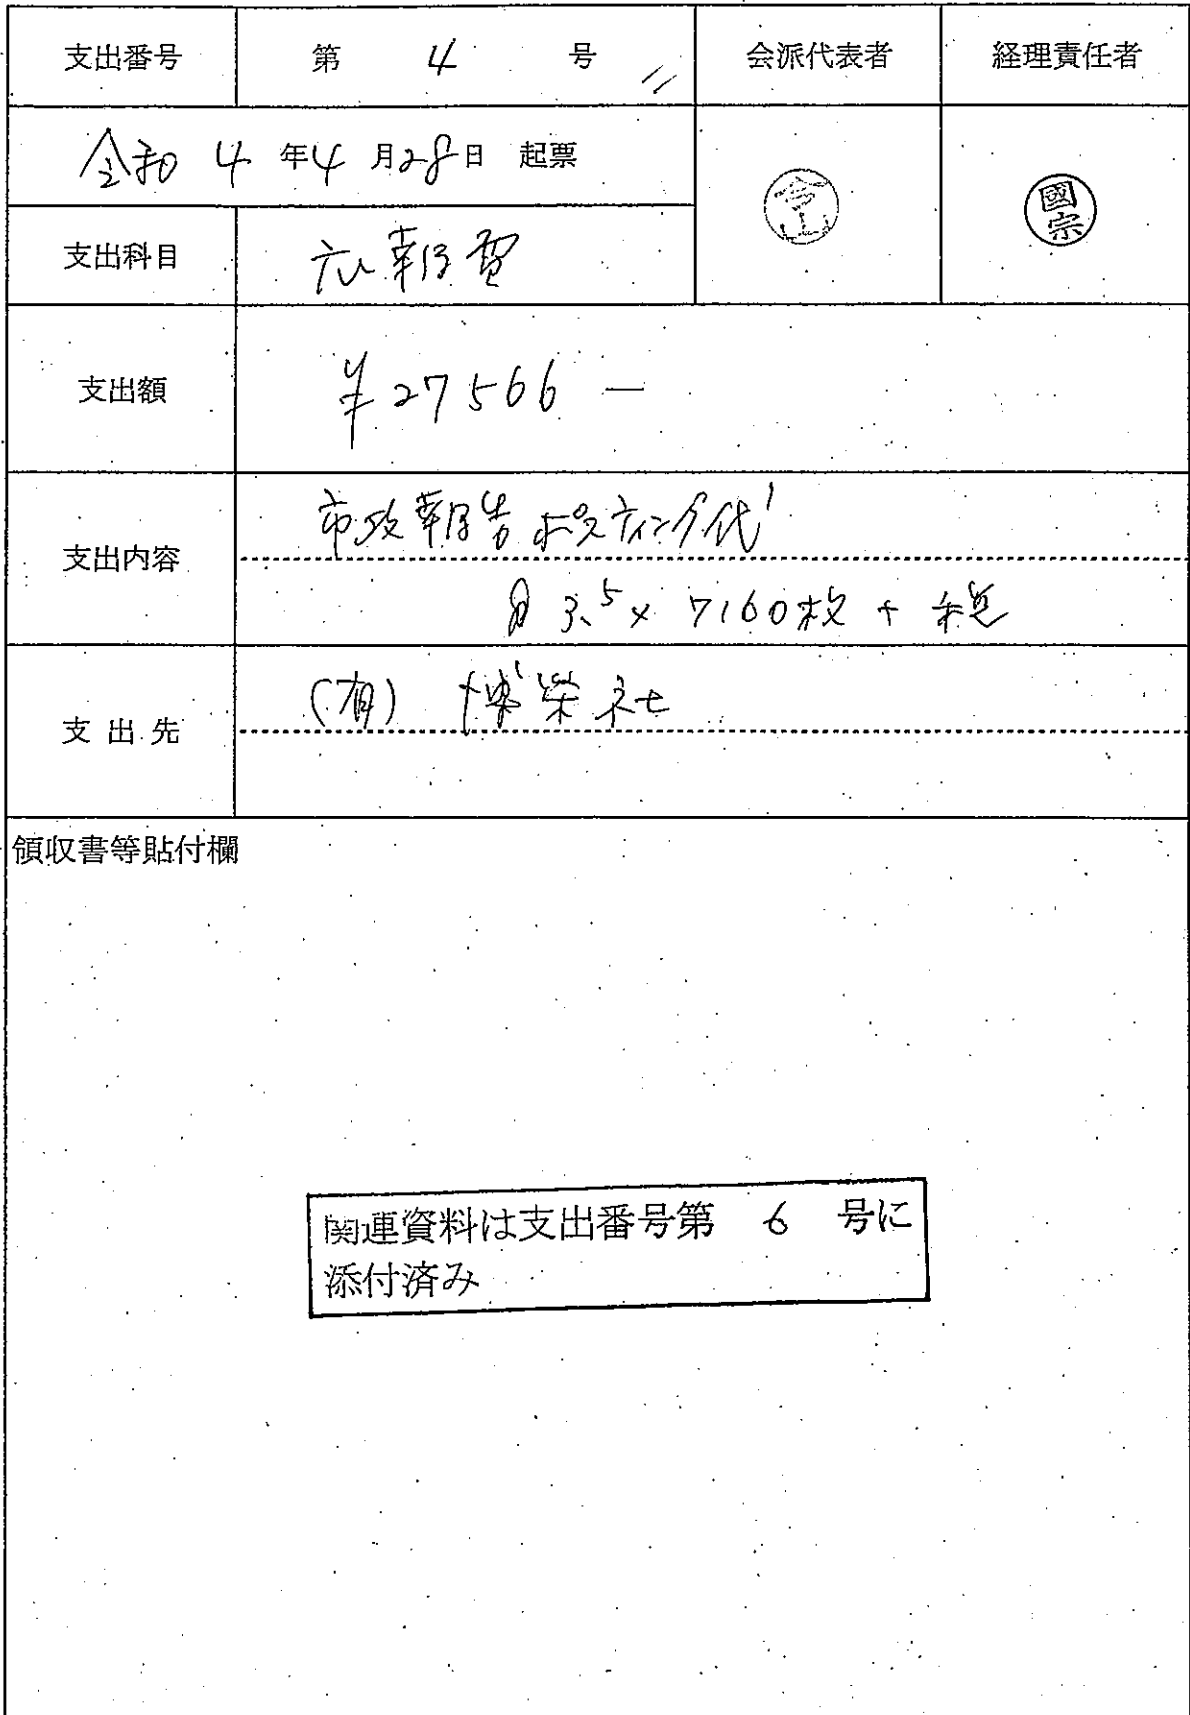 支出番号 第 4 号 会派代表者 経理責任者
令和 4 年 4 月 28 日 起票
國宗
支出科目 広報費
支出額 ¥27566 ―
支出内容 市政報告ポスティング代
@ 3.5 × 7160枚 + 税
支出先 (有) 博栄社
領収書等貼付欄
関連資料は支出番号第 6 号に
添付済み